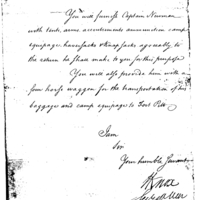 You will furnish Captain Newman
with tents, arms, accoutrements ammunition camp
equipage, haversacks & Knapsacks agreeably to
the return he shall make to you for this purpose
You will also provide him with a
four horse waggon for the transportation of his
baggage and camp equipage to Fort Pitt
I am
Sir
Your humble Servant
H Knox